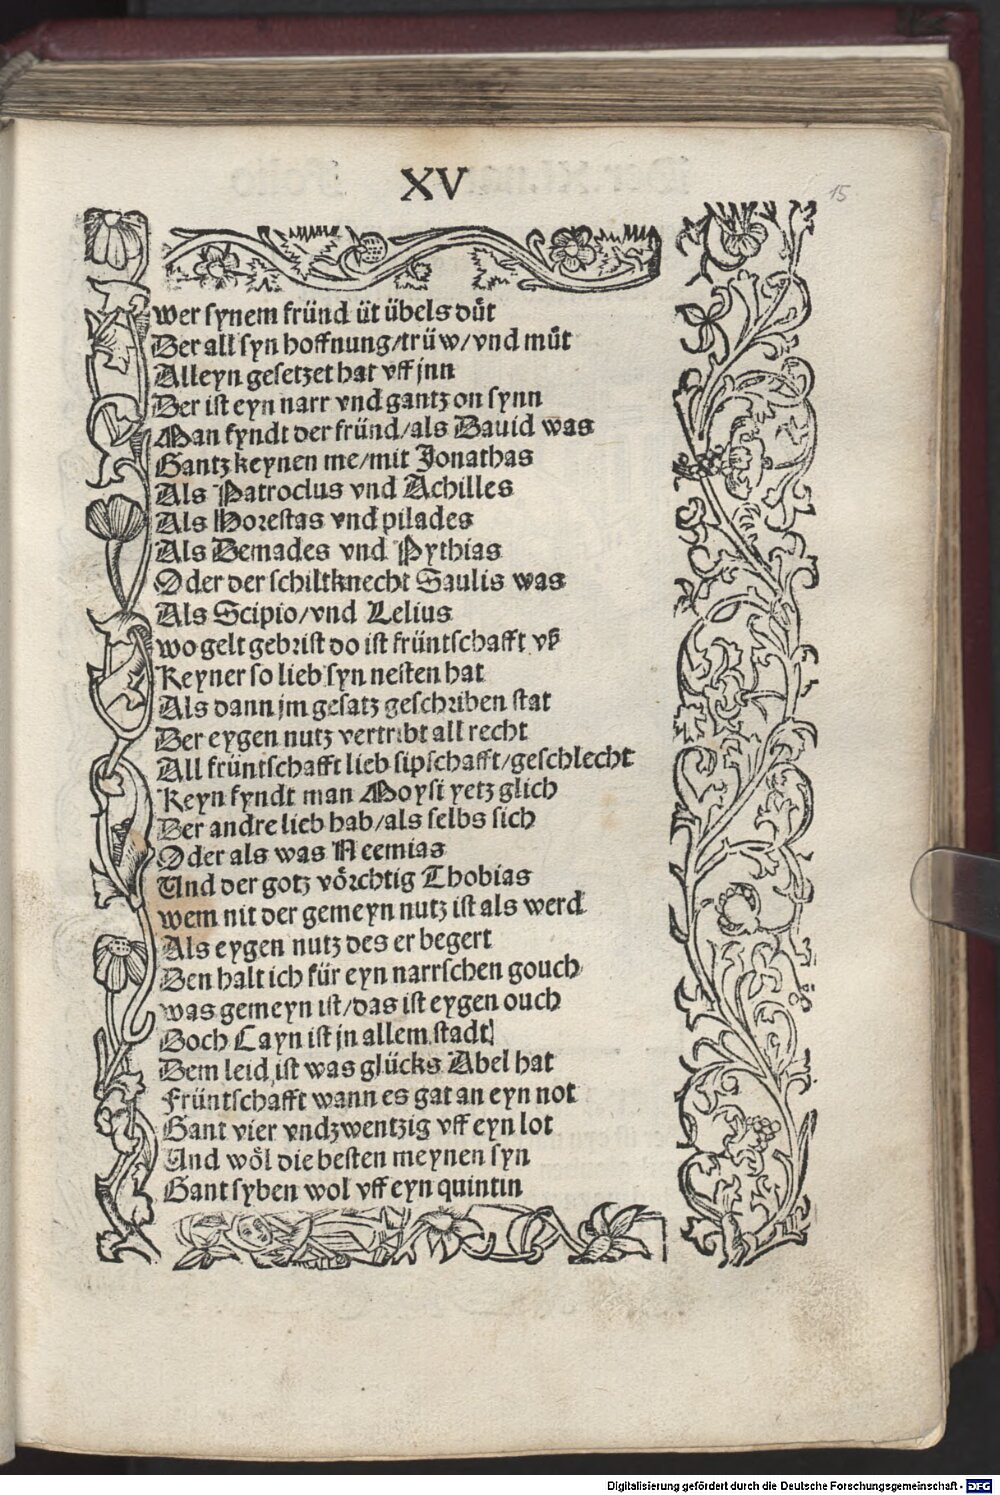 XV
15
wer synem fründ üt übels důt
Der all syn hoffnung/trüw/vnd můt
Alleyn gesetzet hat vff jnn
Der ist eyn narr vnd gantz on synn
Man fyndt der fründ/als Dauid was
Gantz keynen me/mit Jonathas
Als Patroclus vnd Achilles
Als Horestas vnd pilades
Als Demades vnd Pythias
Oder der schiltknecht Saulis was
Als Scipio/vnd Lelius
wo gelt gebrist do ist früntschafft vß
Keyner so lieb syn nesten hat
Als dann jm gesatz geschriben stat
Der eygen nutz vertribt all recht
All früntschafft lieb sipschafft/geschlecht
Keyn fyndt man Moysi yetz glich
Der andre lieb hab/als selbs sich
Oder als was Neemias
Und der gotz vörchtig Thobias
wem nit der gemeyn nutz ist als werd
Als eygen nutz des er begert
Den halt ich für eyn narrschen gouch
was gemeyn ist/das ist eygen ouch
Doch Cayn ist jn allem stadt
Dem leid ist was glücks Abel hat
Früntschafft wann es gat an eyn not
Gant vier vnd zwentzig vff eyn lot
Und wöl die besten meynen syn
Gant syben wol vff eyn quintin
Digitalisierung gefördert durch die Deutsche Forschungsgemeinschaft - DFG